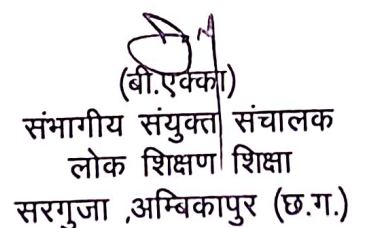 (बी.एक्का)
संभागीय संयुक्त संचालक
लोक शिक्षण शिक्षा
सरगुजा ,अम्बिकापुर (छ.ग.)